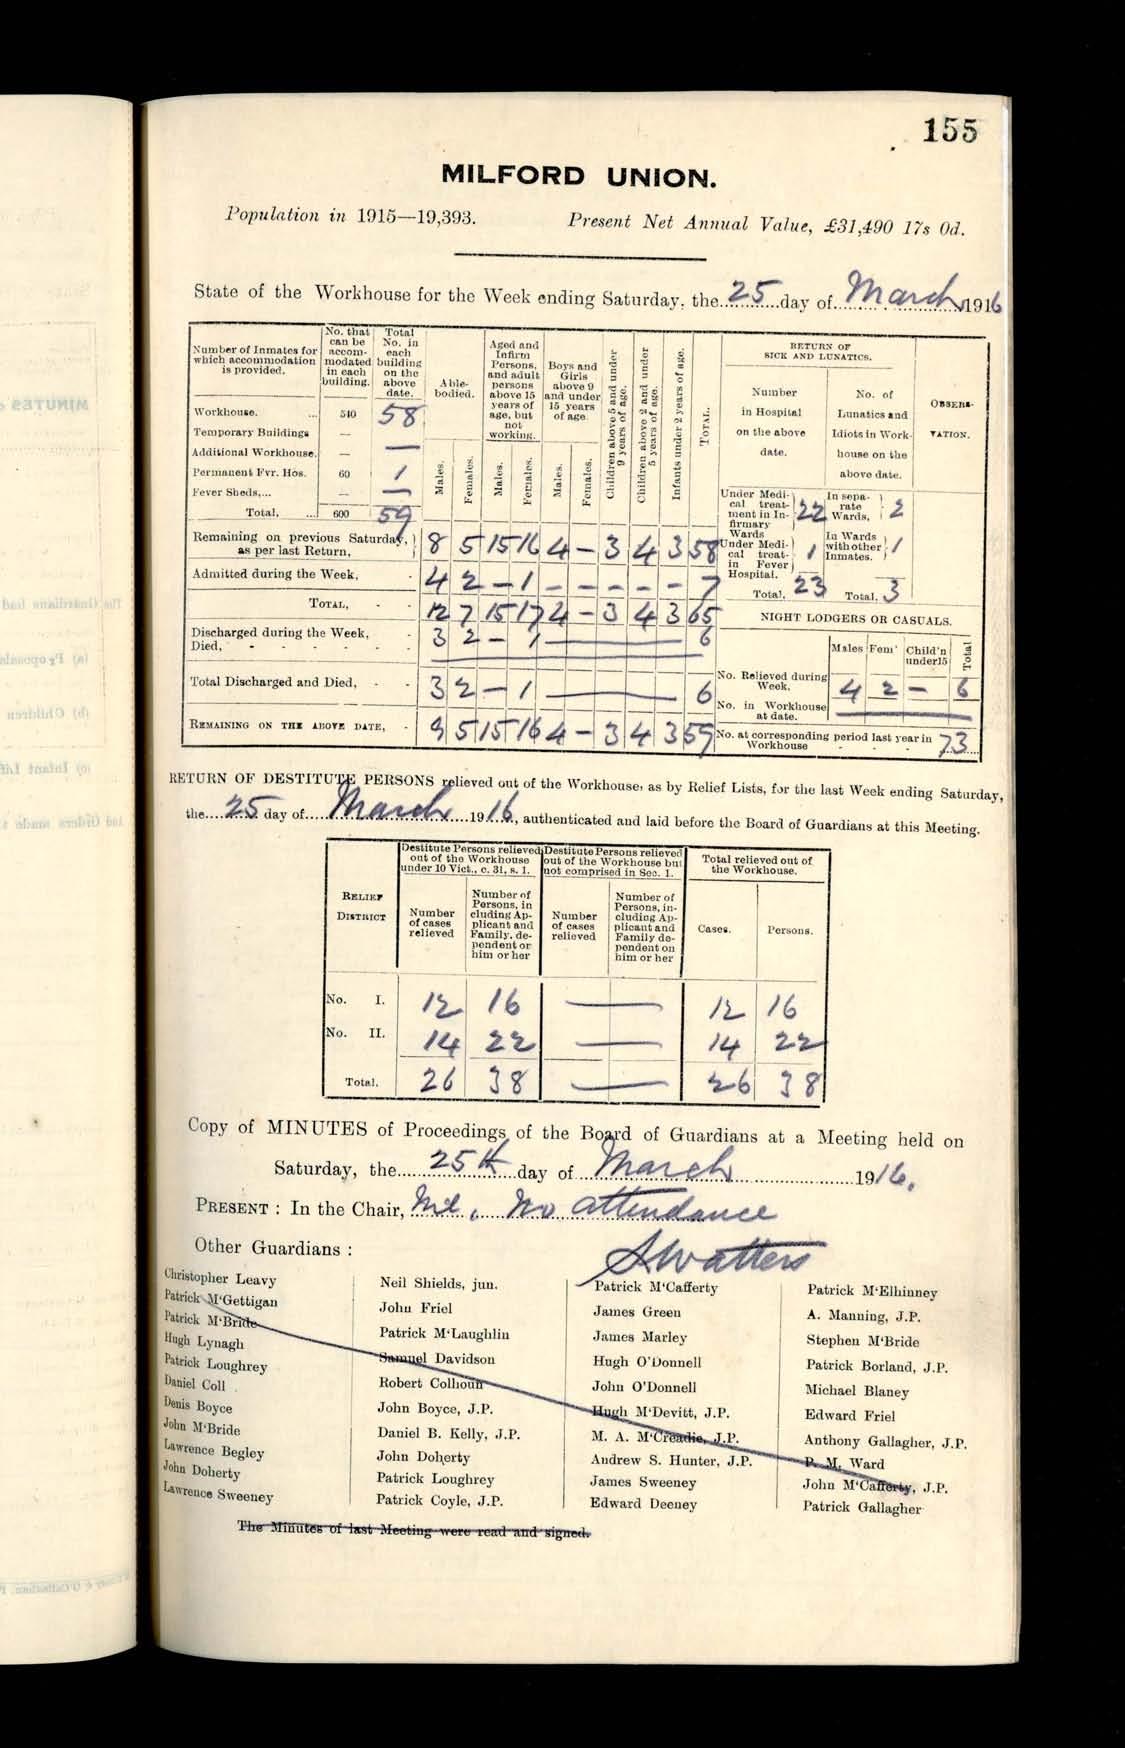 155
MILFORD UNION.
Population in 1915—19,393. Present Net Annual Value, £31,490 17s 0d.
State of the Workhouse for the Week ending Saturday, the 25 day of March 1916
Number of Inmates for which accommodation is provided. No. that can be accommodated in each building. Total No. in each building on the above date.
Able-bodied. Aged and Infirm Persons, and adult persons above 15 years of age, but not working. Boys and Girls above 9 and under 15 years of age. Children above 5 and under 9 years of age. Children above 2 and under 5 years of age. Infants under 2 years of age. TOTAL.
Males. Females. Males. Females. Males. Females.
Workhouse. ... 540 58
Temporary Buildings — —
Additional Workhouse. —
Permanent Fvr. Hos. 60 1
Fever Sheds,... — —
Total, ... 600 59
Remaining on previous Saturday, as per last Return, 8 5 15 16 4 – 3 4 3 58
Admitted during the Week, - 4 2 – 1 – – – – – 7
TOTAL, - - 12 7 15 17 4 – 3 4 3 65
Discharged during the Week, - 3 2 – 1 — 6
Died, - - - - - -
Total Discharged and Died, - - 3 2 – 1 — 6
REMAINING ON THE ABOVE DATE, - 9 5 15 16 4 – 3 4 3 59
RETURN OF SICK AND LUNATICS.
Number in Hospital on the above date.
No. of Lunatics and Idiots in Workhouse on the above date.
OBSERVATION.
Under Medical treatment in Infirmary Wards 22 In separate Wards, 2
Under Medical treat- in Fever Hospital. 1 In Wards with other Inmates. 1
Total, 23 Total, 3
NIGHT LODGERS OR CASUALS.
Males Fem' Child'n under 15 Total
No. Relieved during Week, 4 2 – 6
No. in Workhouse at date. —
No. at corresponding period last year in Workhouse - - - 73
RETURN OF DESTITUTE PERSONS relieved out of the Workhouse, as by Relief Lists, for the last Week ending Saturday,
the 25 day of March 1916, authenticated and laid before the Board of Guardians at this Meeting.
RELIEF DISTRICT
Destitute Persons relieved out of the Workhouse under 10 Vict., c. 31, s. 1.
Destitute Persons relieved out of the Workhouse but not comprised in Sec. 1.
Total relieved out of the Workhouse.
Number of cases relieved
Number of Persons, including Applicant and Family, dependent or him or her
Number of cases relieved
Number of Persons, including Applicant and Family dependent on him or her
Cases. Persons.
No. I. 12 16 — 12 16
No. II. 14 22 — 14 22
Total. 26 38 — 26 38
Copy of MINUTES of Proceedings of the Board of Guardians at a Meeting held on
Saturday, the 25th day of March 1916.
PRESENT : In the Chair, Nil, No attendance
SWatters
Other Guardians :
Christopher Leavy
Patrick M'Gettigan
Patrick M'Bride
Hugh Lynagh
Patrick Loughrey
Daniel Coll
Denis Boyce
John M'Bride
Lawrence Begley
John Doherty
Lawrence Sweeney
Neil Shields, jun.
John Friel
Patrick M'Laughlin
Samuel Davidson
Robert Colhoun
John Boyce, J.P.
Daniel B. Kelly, J.P.
John Doherty
Patrick Loughrey
Patrick Coyle, J.P.
Patrick M'Cafferty
James Green
James Marley
Hugh O'Donnell
John O'Donnell
Hugh M'Devitt, J.P.
M. A. M'Creadie, J.P.
Andrew S. Hunter, J.P.
James Sweeney
Edward Deeney
Patrick M'Elhinney
A. Manning, J.P.
Stephen M'Bride
Patrick Borland, J.P.
Michael Blaney
Edward Friel
Anthony Gallagher, J.P.
P. M. Ward
John M'Cafferty, J.P.
Patrick Gallagher
The Minutes of last Meeting were read and signed.